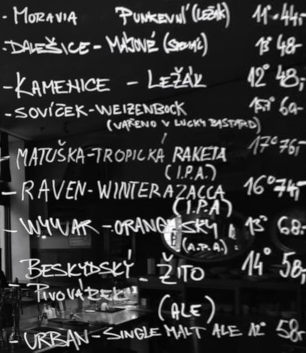 - MORAVIA PUNKEVNÍ (LEŽÁK) 11° 44,-
- DALEŠICE - MÁJOVÉ (SPECIÁL) 13° 48,-
- KAMENICE - LEŽÁK 12° 48,-
- SOVÍZEK - WEIZENBOCK 60,-
(VAŘENO V LUCKY BASTARD)
- MATUŠKA - TROPICKÁ RAKETA 17° 76,-
(I.P.A.)
- RAVEN - WINTER AZACCA 16° 74,-
(I.P.A)
- WYWAR - ORANGE SKY 13° 68,-
(A.P.A.)
- BESKYDSKÝ - ŽITO 14° 58,-
PIVOVÁREK
(ALE)
- URBAN - SINGLE MALT ALE 12° 58,-